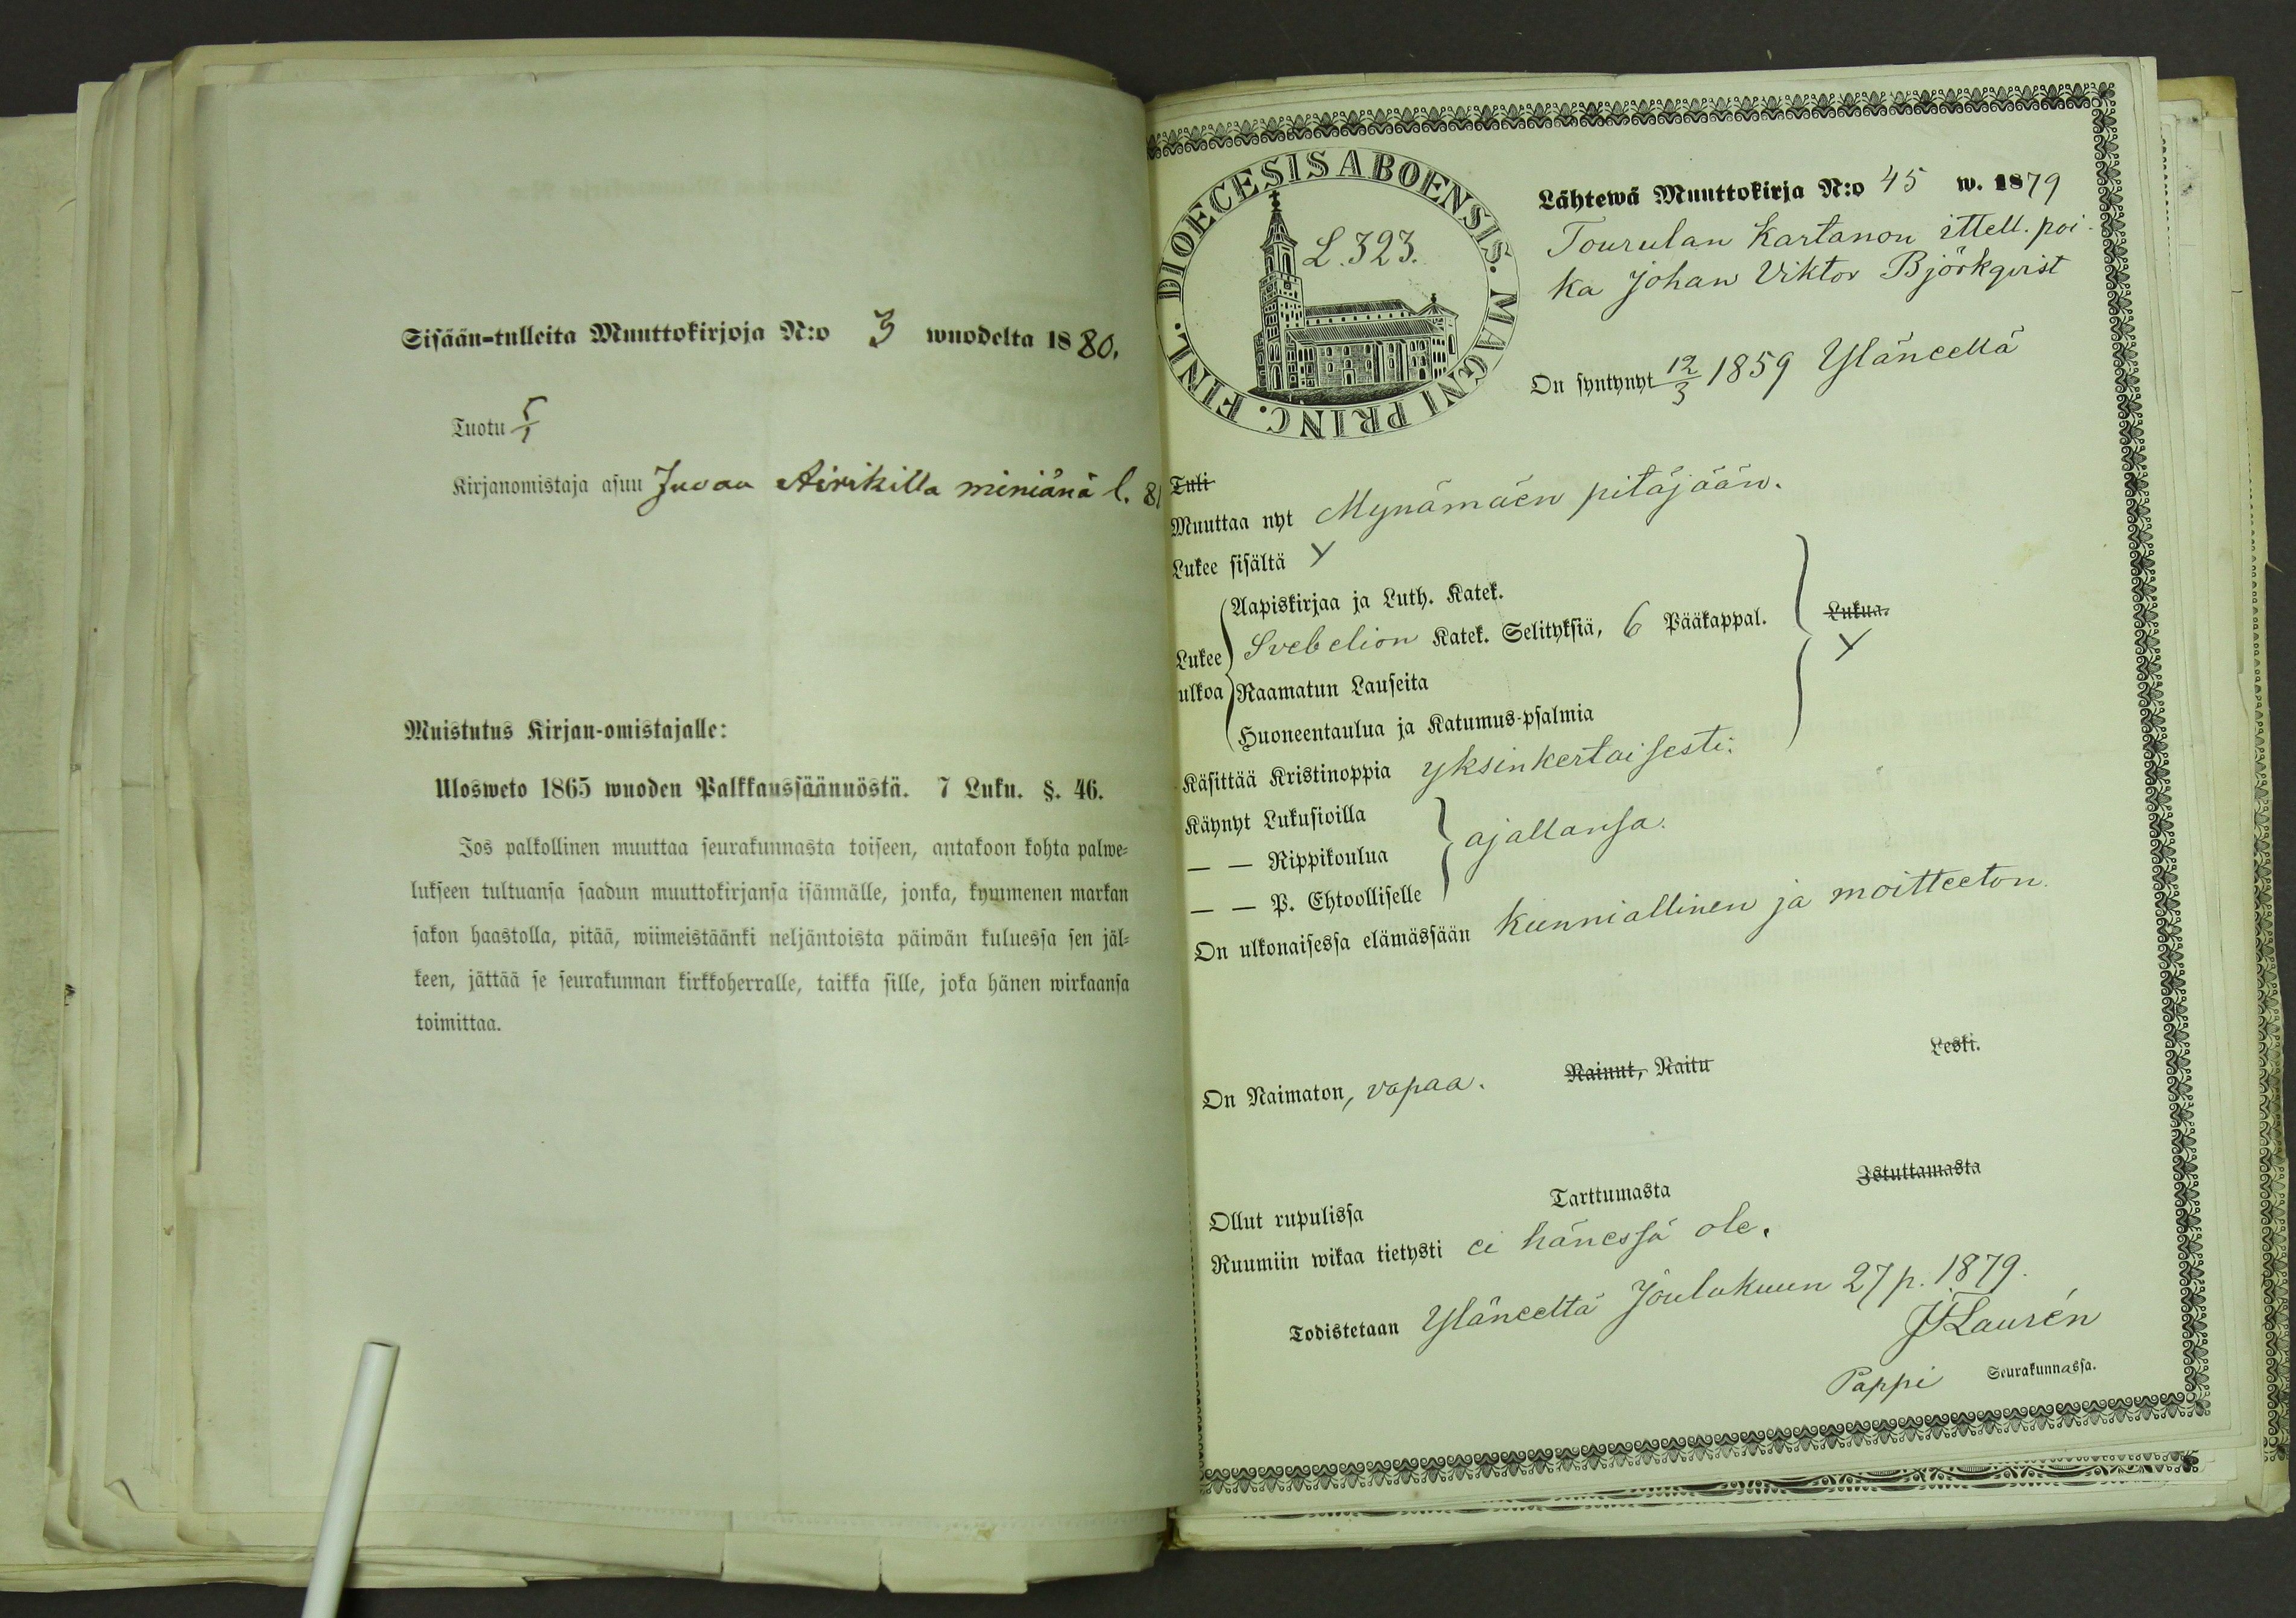 Sisään-tulleita Muuttokirjoja N:o 3 wuodelta 1880.
Tuotu 5/1
Kirjanomistaja asuu Juvan Airikilla miniänä l. 81
Muistutus Kirjan-omistajalle:
Ulosweto 1865 wuoden Palkkaussäännöstä. 7 Luku. §. 46.
Jos palkollinen muuttaa seurakunnasta toiseen, antakoon kohta palwe-
lukseen tultuansa saadun muuttokirjansa isännälle, jonka, kymmenen markan
sakon haastolla, pitää, wiimeistäänki neljäntoista päiwän kuluessa sen jäl-
keen, jättää se seurakunnan kirkkoherralle, taikka sille, joka hänen wirkaansa
toimittaa.
DIOECESIS ABOENSIS. MAGNI PRINC. FINL.
L. 323.
Lähtewä Muuttokirja N:o 45 w. 1879
Tourulan Kartanon ittell. poi-
ka Johan Viktor Björkqvist
On syntynyt 12/3 1859 Yläneellä
Tuli
Muuttaa nyt Mynämäen pitäjään.
Lukee sisältä Y
Lukee ulkoa
Aapiskirjaa ja Luth. Katek.
Svebelion Katek. Selityksiä, 6 Pääkappal.
Lukua.
Y
Raamatun Lauseita
Huoneentaulua ja Katumus-psalmia
Käsittää Kristinoppia yksinkertaisesti.
Käynyt Lukusioilla
— — Rippikoulua ajallansa.
— — P. Ehtoolliselle
On ulkonaisessa elämässään kunniallinen ja moitteeton.
On Naimaton, vapaa. Nainut, Naitu Leski.
Ollut rupulissa Tarttumasta Istuttamasta
Ruumiin wikaa tietysti ei hänessä ole.
Todistetaan Yläneeltä Joulukuun 27 p. 1879.
JFLaurén
Pappi Seurakunnassa.